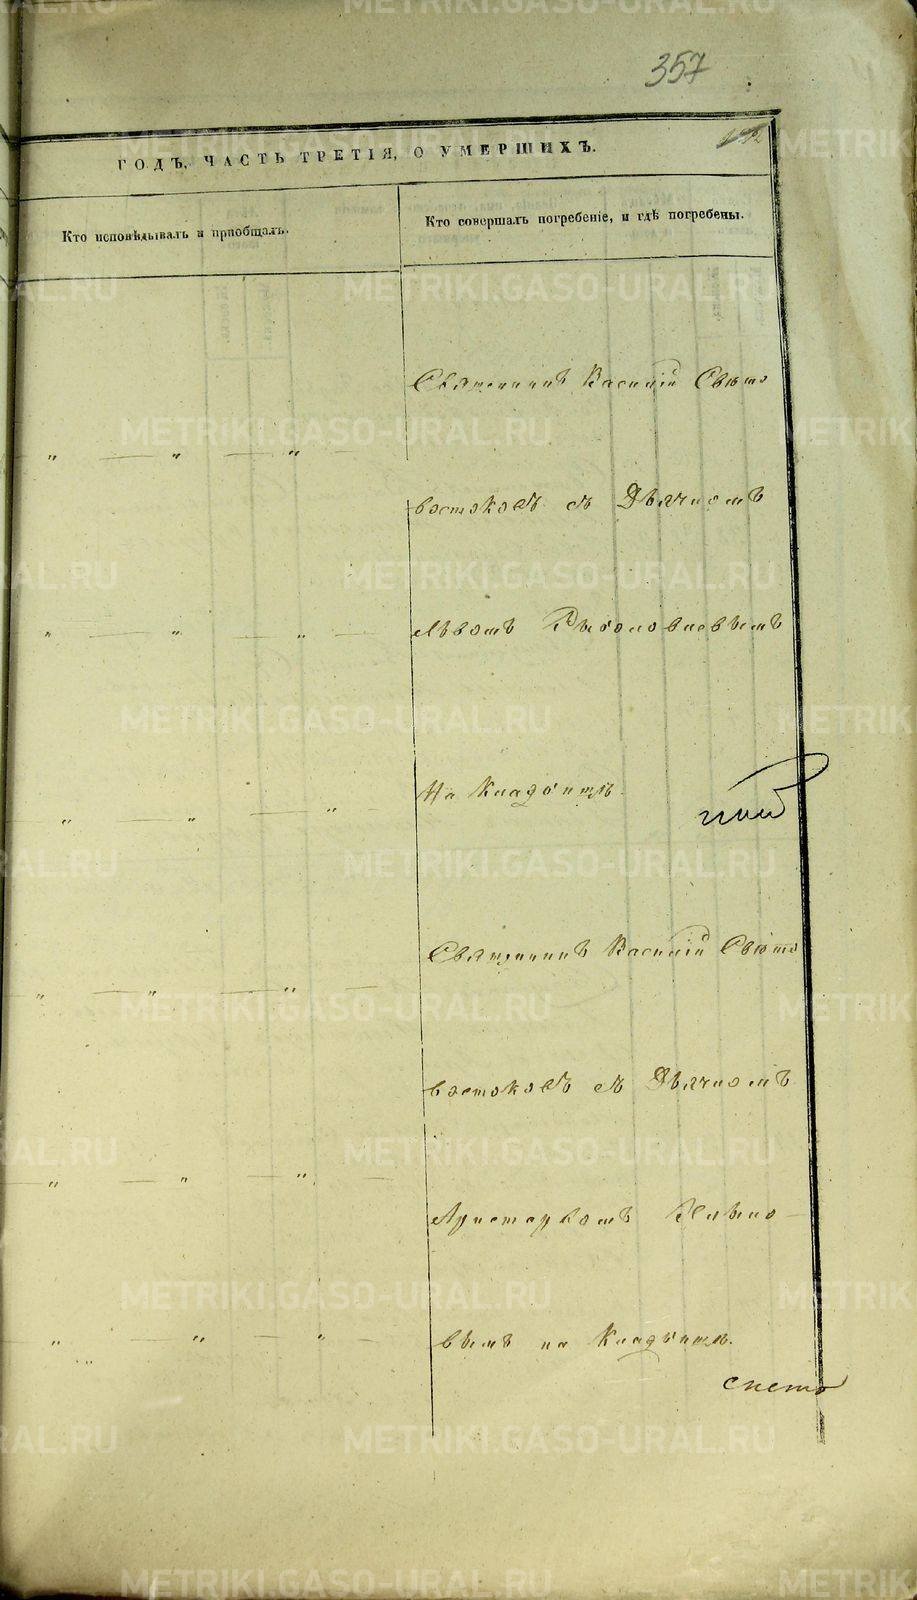 357
ГОДЪ, ЧАСТЬ ТРЕТІЯ, О УМЕРШИХЪ.
Кто исповѣдывалъ и пріобщалъ.
Кто совершалъ погребеніе, и гдѣ погребены.
Священникъ Василій Свѣто
" " "
востоковъ съ Дьячкомъ
" " "
Львомъ
На Кладбищѣ.
" " "
Священникъ Василій Свѣто
" " "
востоковъ съ Дьячкомъ
" " "
Аристархомъ
вымъ на Кладбищѣ.
" " "
METRIKI.GASO-URAL.RU